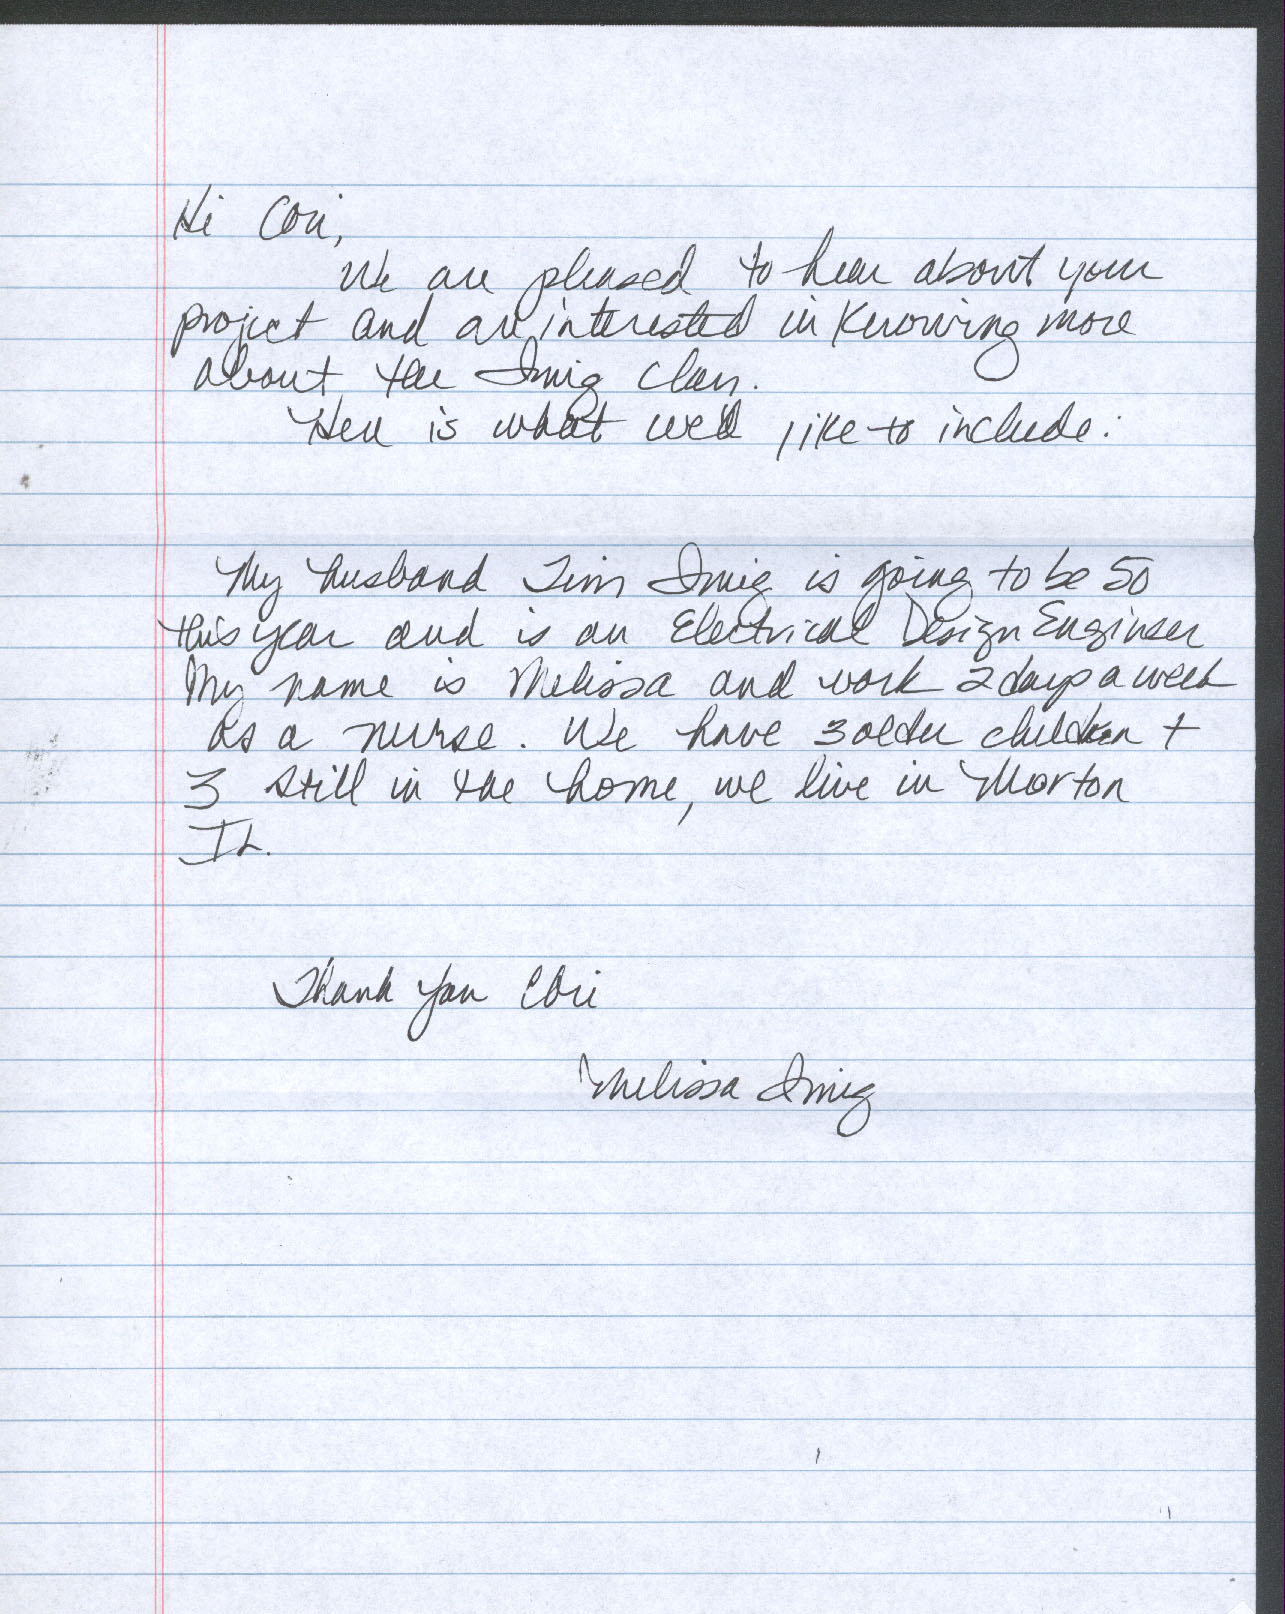 Hi Cori,
We are pleased to hear about your
project and are interested in Knowing more
about the Imig Clan.
Here is what we'd like to include:
My husband Jim Imig is going to be 50
this year and is an Electrical Design Engineer
My name is Melissa and work 2 days a week
as a nurse. We have 3 older children +
3 still in the home, we live in Morton
IL.
Thank you Cori
Melissa Imig